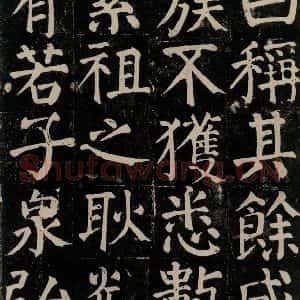 稱其餘咸
族不獲悉數
祖之耿光
有若子泉弘
Shufawang.CN